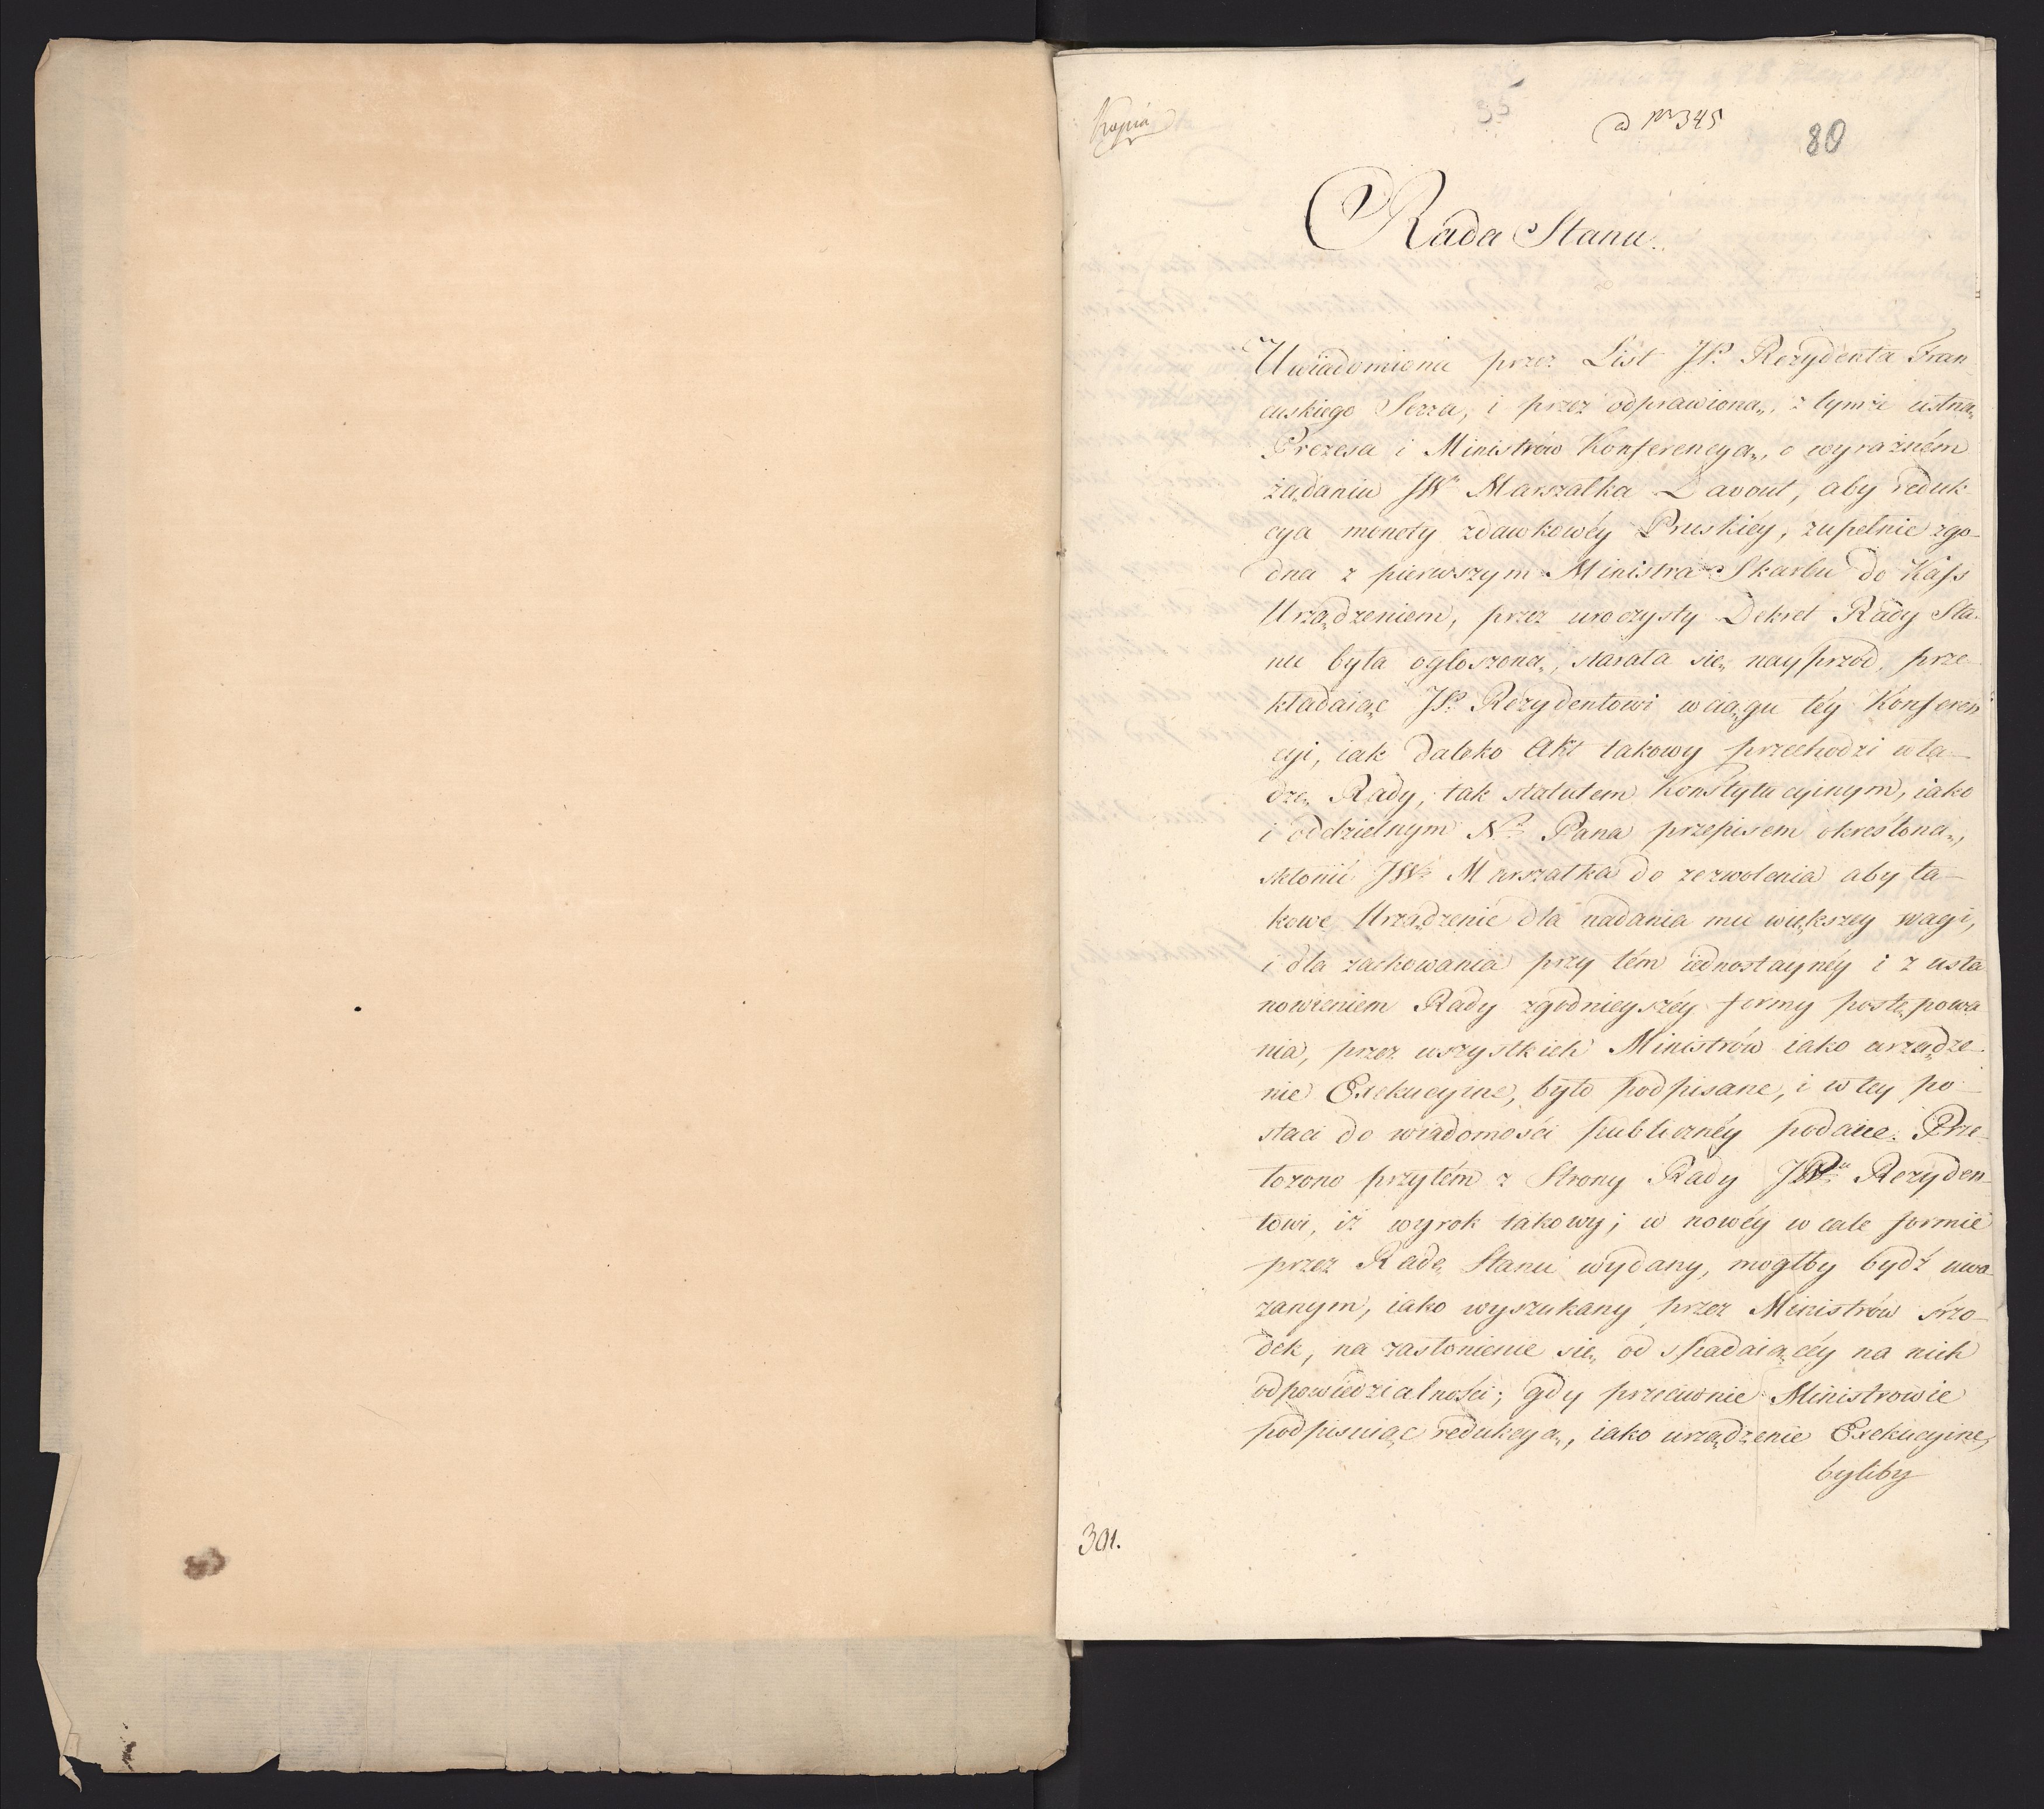 Kopia
ad Nr 345
80
Rada Stanu.
Uwiadomiona przez List JP. Rezydenta Fran
cuskiego Serra, i przez odprawioną, z tymże ustną
Prezesa i Ministrów Konferencyą, o wyrażném
żądaniu JWo Marszałka Davout, aby reduk
cya monety zdawkowéy Pruskiéy, zupełnie zgo-
dna z pierwszym Ministra Skarbu do Kass
Urządzeniem, przez uroczysty Dekret Rady Sta-
nu była ogłoszona, starała się nayprzód, prze-
kładaiąc JP. Rezydentowi w ciągu téy Konferen
cyi, iak daleko Akt takowy przechodzi wła-
dzę Rady, tak statutem Konstytucyinym, iako
i oddzielnym No Pana przepisem określoną,
skłonić JWo Marszałka do zezwolenia aby ta-
kowe Urządzenie dla nadania mu większey wagi,
i dla zachowania przy tém iednostaynéy i z usta
nowieniem Rady zgodnieyszéy formy postępowa
nia, przez wszystkich Ministrów iako urządze-
nie Exekucyine, było podpisane, i w tey po-
staci do wiadomości publicznéy podane. Prze-
łożono przytém z Strony Rady JPu Rezyden-
towi, iż wyrok takowy; w nowéy w cale formie
przez Radę Stanu wydany, mógłby bydź uwa-
żanym, iako wyszukany przez Ministrów śrzo-
dek, na zasłonienie się, od spadaiącéy na nich
odpowiedzialności; gdy przeciwnie Ministrowie
podpisuiąc redukcyą, iako urządzenie Exekucyine,
byliby
301.